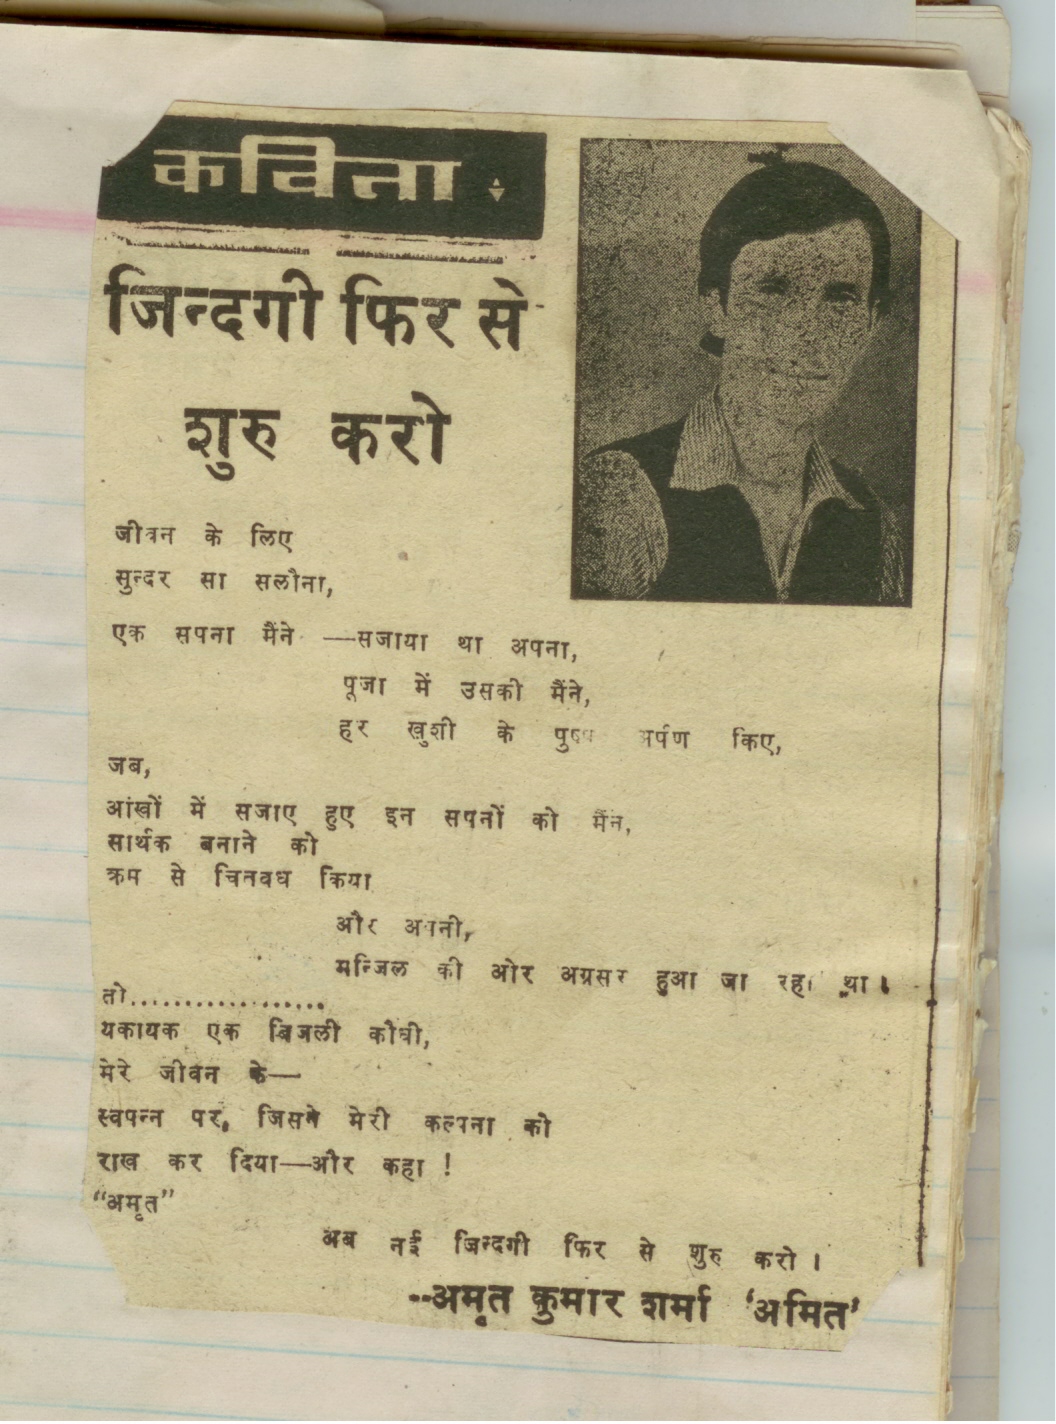 कविता
जिन्दगी फिर से
शुरु करो
जीवन के लिए
सुन्दर सा सलौना,
एक सपना मैंने —सजाया था अपना,
पूजा में उसकी मैंने,
हर खुशी के पुष्प अर्पण किए,
जब,
आंखों में सजाए हुए इन सपनों को मैंने,
सार्थक बनाने को
क्रम से चितवध किया
और अपनी,
मन्जिल की ओर अग्रसर हुआ जा रहा था।
तो..................
यकायक एक बिजली कौंधी,
मेरे जीवन के—
स्वपन्न पर, जिसने मेरी कल्पना को
राख कर दिया—और कहा !
“अमृत”
अब नई जिन्दगी फिर से शुरु करो ।
--अमृत कुमार शर्मा ‘अमित’